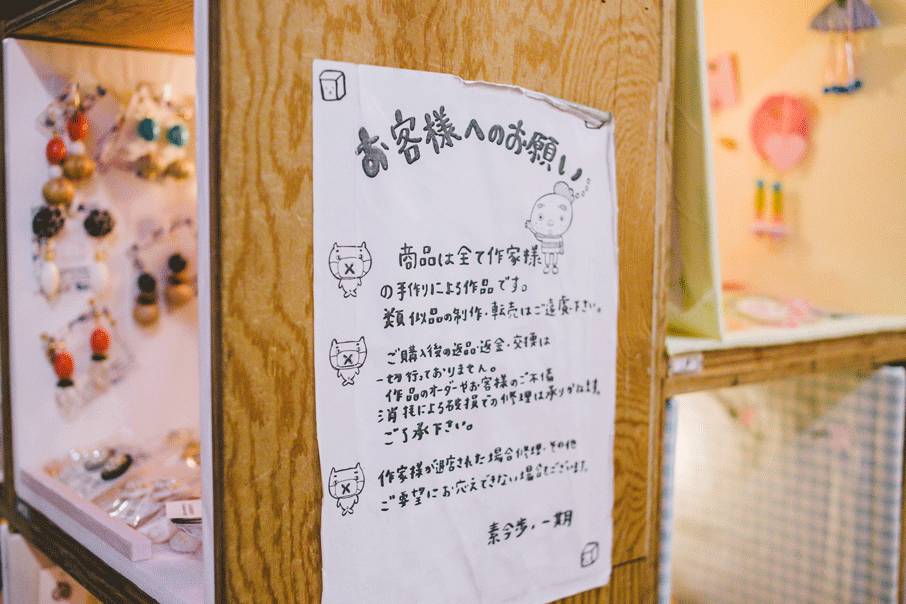 お客様へのお願い
商品は全て作家様
の手作りによる作品です。
類似品の制作・転売はご遠慮下さい。
ご購入後の返品・返金・交換は
一切行っておりません。
作品のオーダーやお客様のご不備
消耗による破損での修理は承りかねます。
ご了承下さい。
作家様が退店された場合修理・その他
ご要望にお応えできない場合もございます。
素今歩・一期